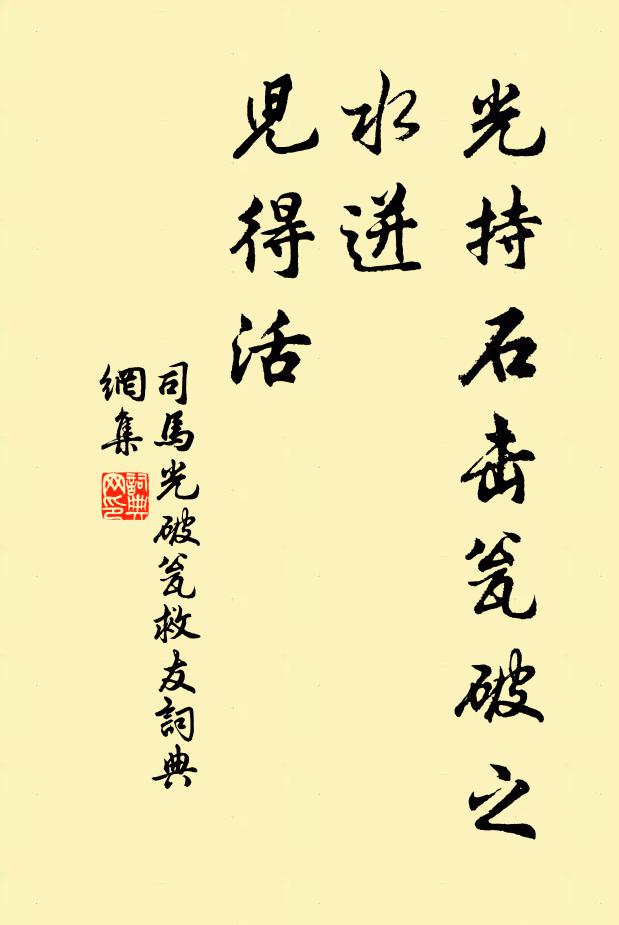 光持石击瓮破之
水迸
児得活
司馬光破瓮救友詞典
網集
詞典
网印